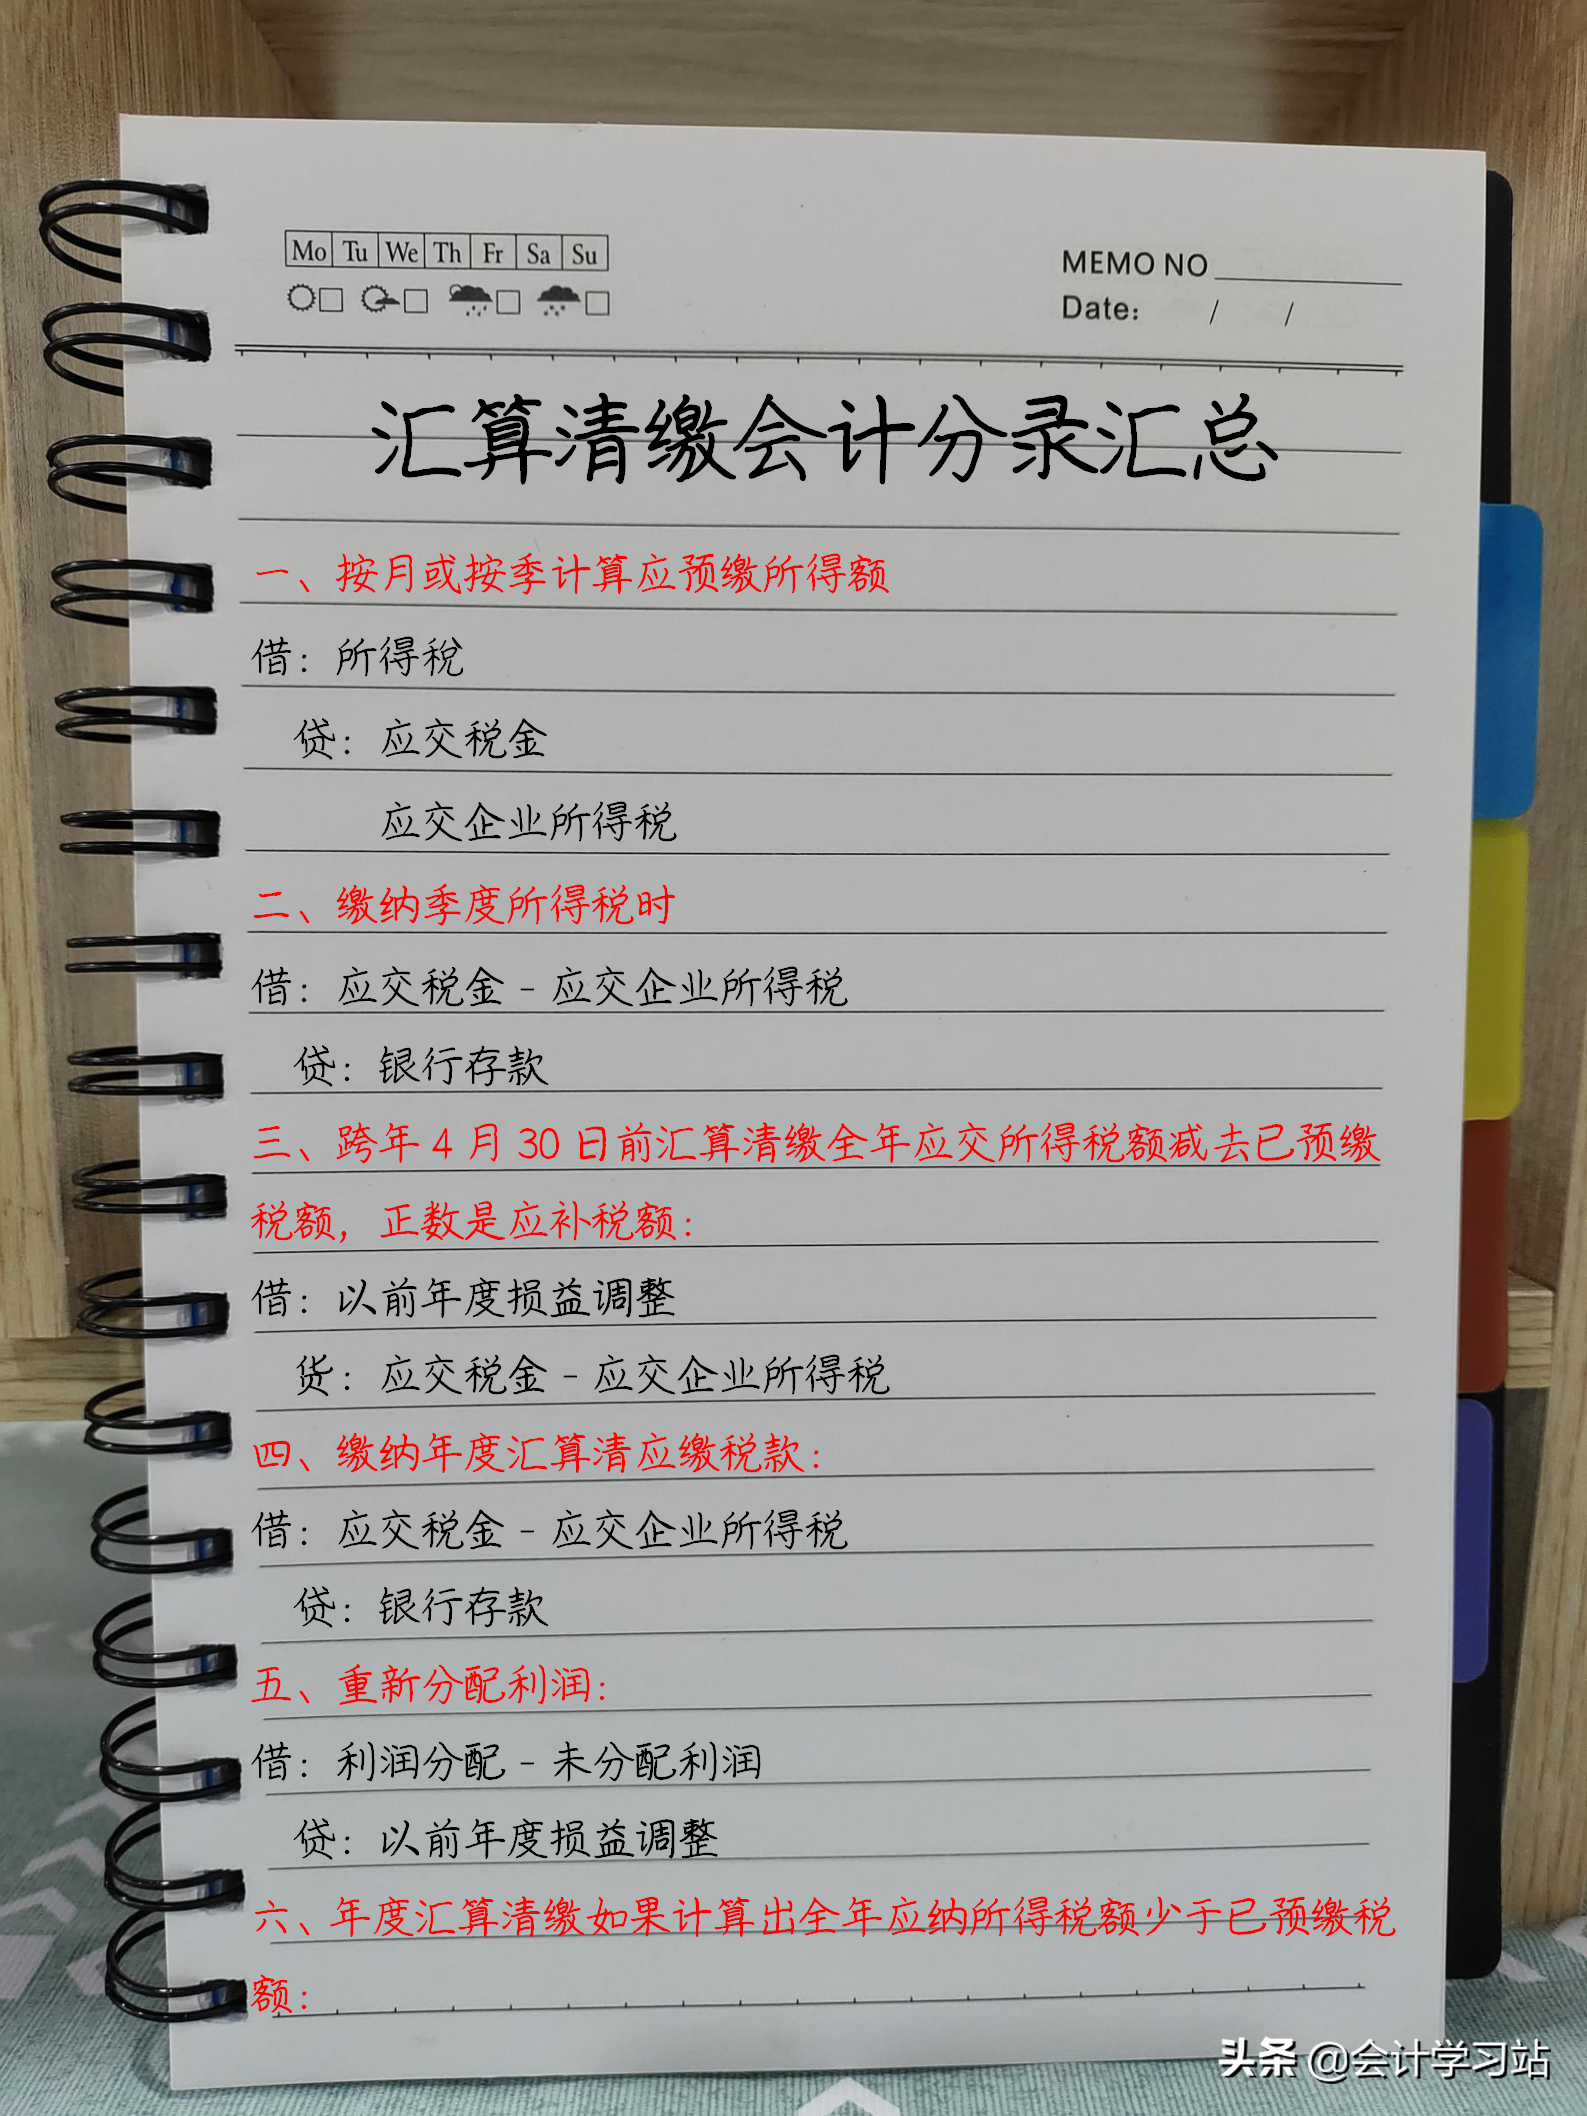 Mo Tu We Th Fr Sa Su
MEMO NO
Date: / /
汇算清缴会计分录汇总
一、按月或按季计算应预缴所得额
借：所得税
贷：应交税金
应交企业所得税
二、缴纳季度所得税时
借：应交税金-应交企业所得税
贷：银行存款
三、跨年4月30日前汇算清缴全年应交所得税额减去已预缴
税额，正数是应补税额：
借：以前年度损益调整
货：应交税金-应交企业所得税
四、缴纳年度汇算清应缴税款：
借：应交税金-应交企业所得税
贷：银行存款
五、重新分配利润：
借：利润分配-未分配利润
贷：以前年度损益调整
六、年度汇算清缴如果计算出全年应纳所得税额少于已预缴税
额：
头条 @会计学习站